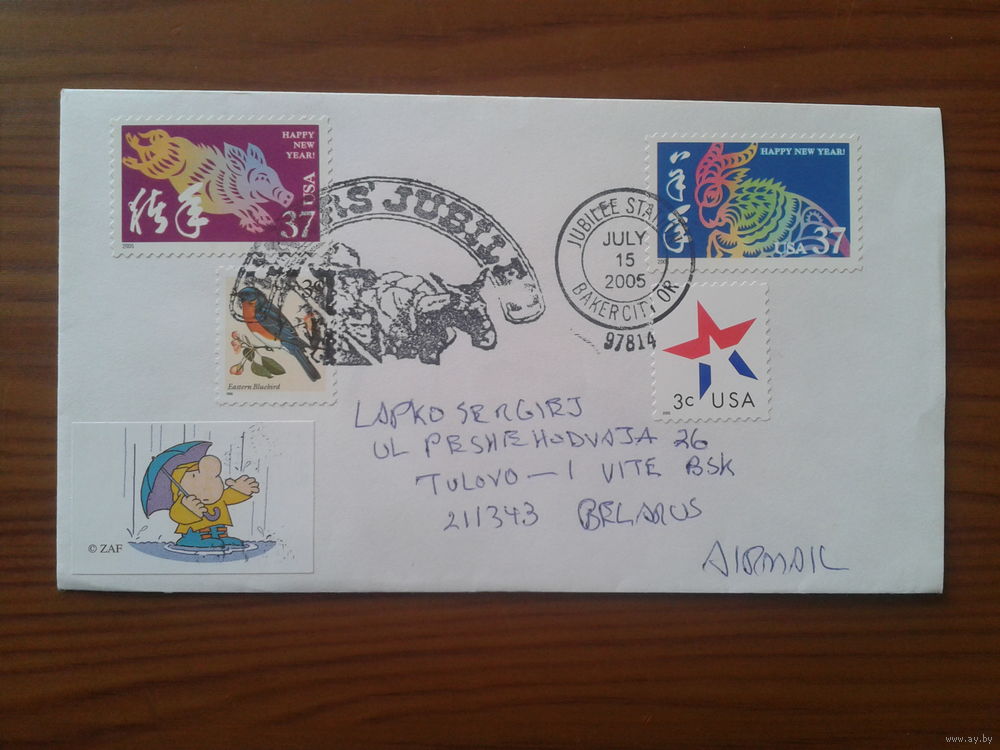 HAPPY
NEW
YEAR!
USA
37
2005
HAPPY NEW YEAR!
USA 37
JUBILEE
JUBILEE STA
JULY
15
2005
BAKER CITY OR
97814
Eastern Bluebird
3c USA
LAPKO SERGIEJ
UL PESHEHODVAJA 26
TULOVO-1 VITEBSK
211343 BELARUS
AIRMAIL
© ZAF
www.ay.by